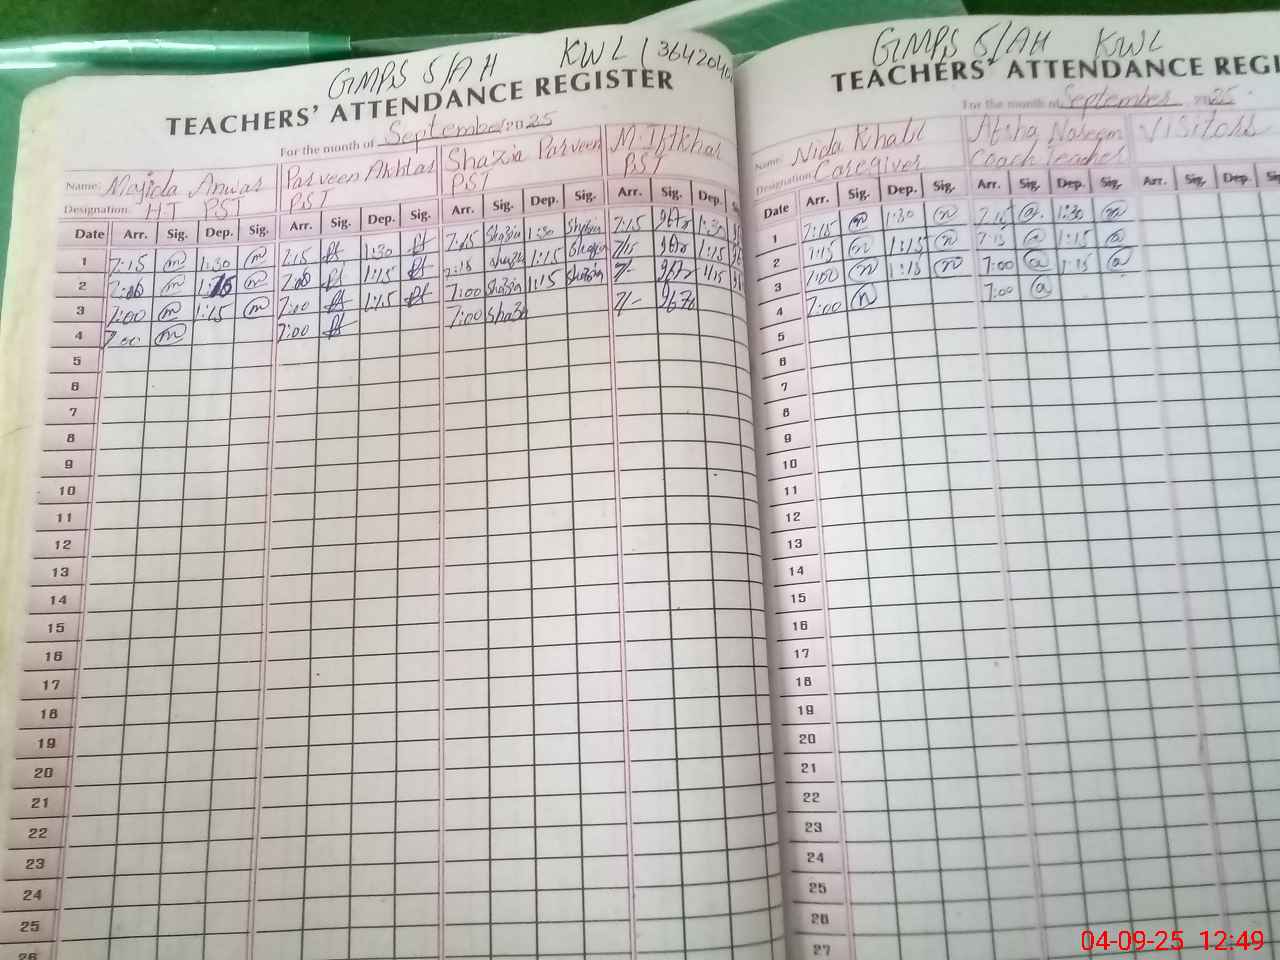 GMPS 5/AH KWL (3642040
TEACHERS' ATTENDANCE REGISTER
For the month of September 2025
Name: Majida Anwar Parveen Akhtar Shazia Parveen M. Iftkhar
Designation: H.T PST PST PST PST
Date Arr. Sig. Dep. Sig. Arr. Sig. Dep. Sig. Arr. Sig. Dep. Sig. Arr. Sig. Dep.
1 7:15 1:30 7:15 1:30 7:15 Shazia 1:30 Shazia 7:15 1:30
2 1:15 1:15 7:15 Shazia 1:15 Shazia 7/15 1:15
3 7:00 1:15 7:00 1:15 7:00 Shazia 1:15 Shazia 7/- 1:15
4 7:00 7:00 7:00 Shazia 7/-
5
6
7
8
9
10
11
12
13
14
15
16
17
18
19
20
21
22
23
24
25
26
GMPS 5/AH KWL
TEACHERS' ATTENDANCE REGI
For the month of September 2025
Name: Nida Khalil Aisha Naeem Visitors
Designation: Caregiver Coach Teacher
Date Arr. Sig. Dep. Sig. Arr. Sig. Dep. Sig. Arr. Sig. Dep.
1 7:15 1:30 7:15 1:30
2 7:15 1:15 7:15 1:15
3 7:00 1:15 7:00 1:15
4 7:00 7:00
5
6
7
8
9
10
11
12
13
14
15
16
17
18
19
20
21
22
23
24
25
26
27
04-09-25 12:49